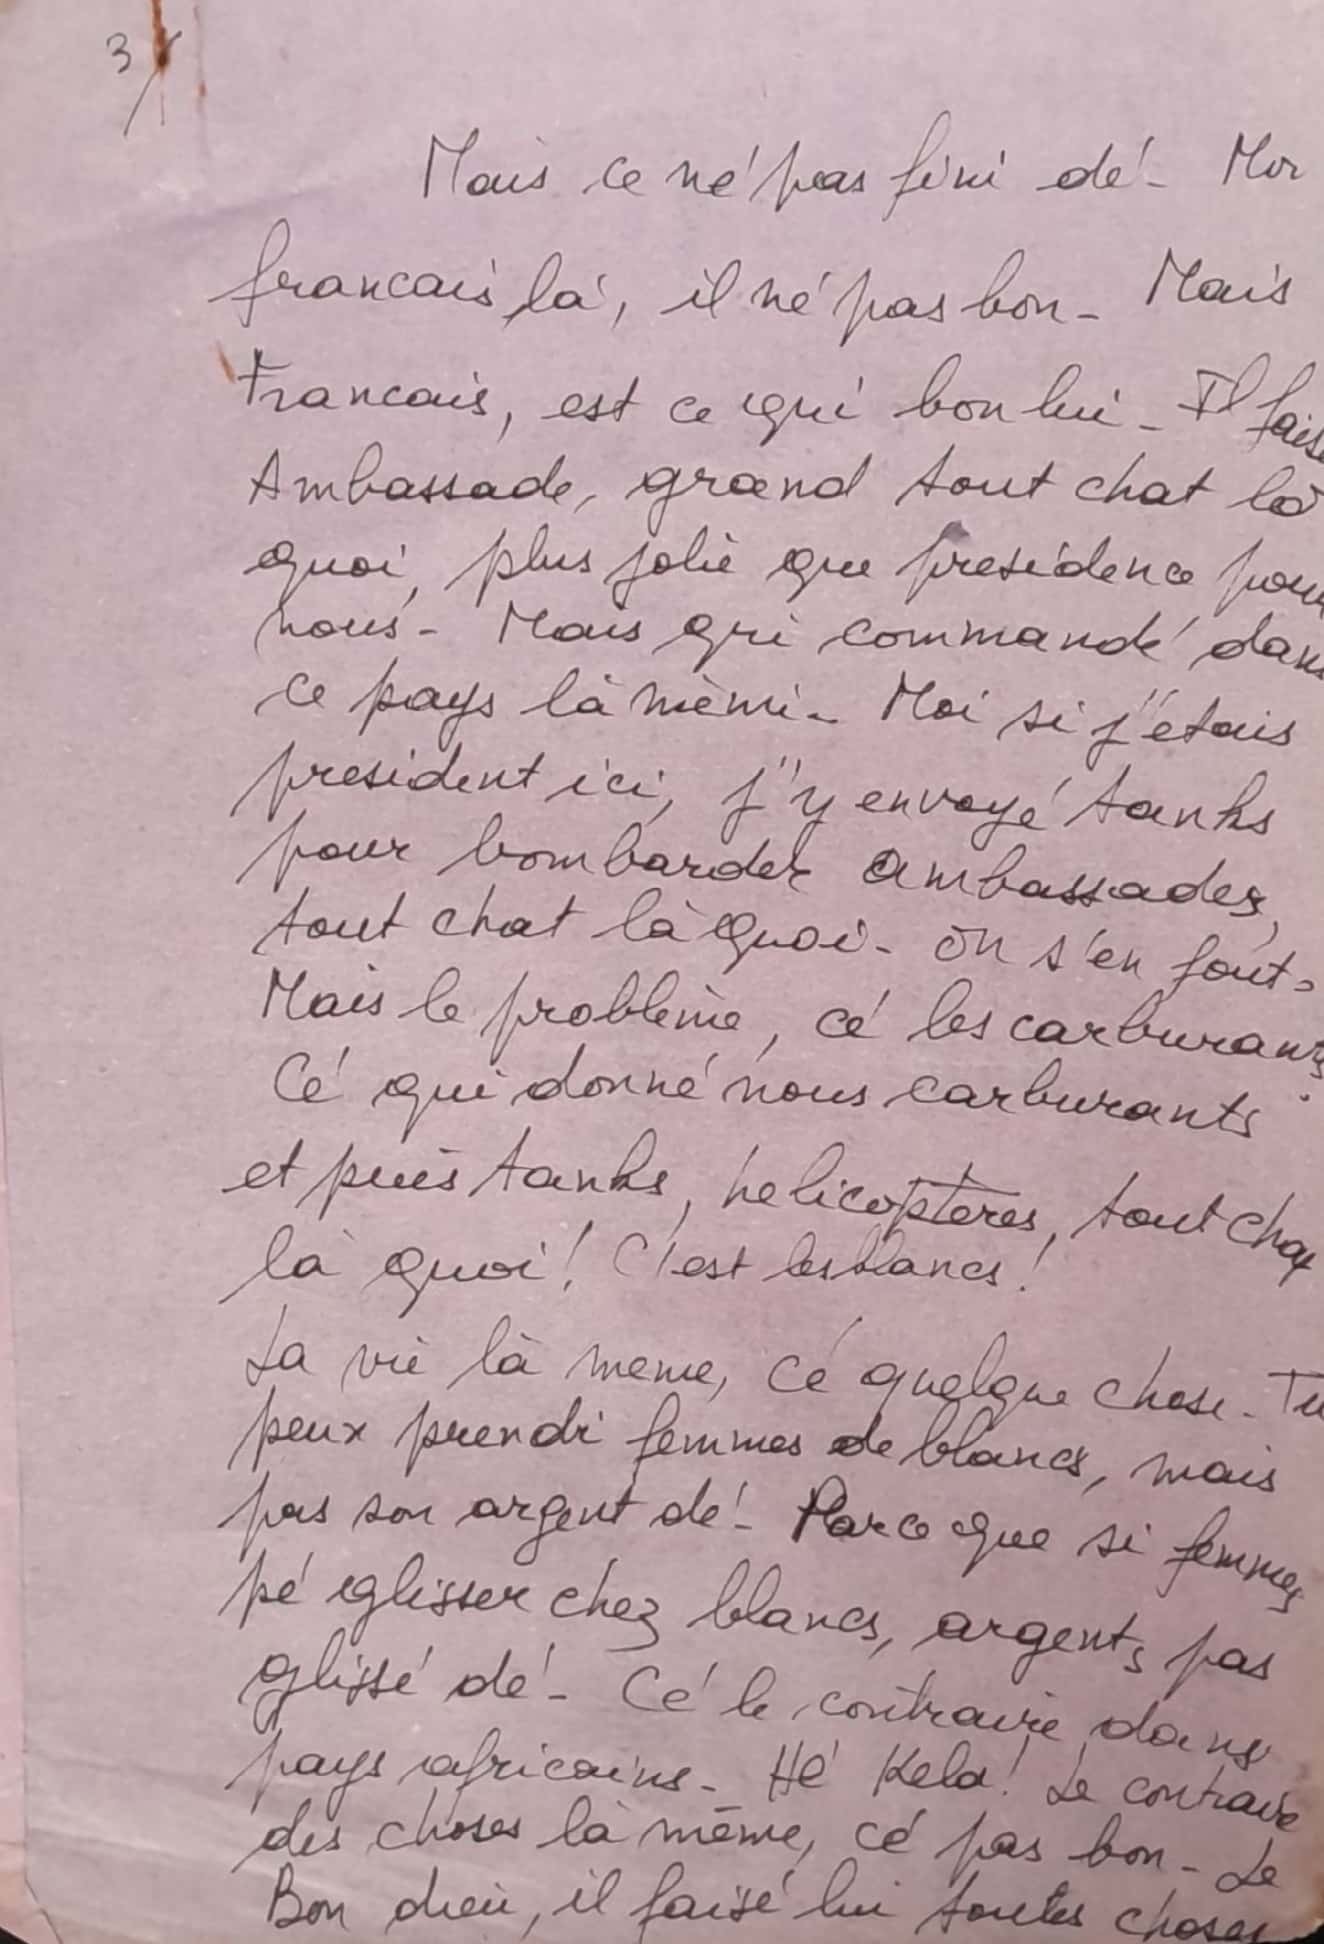 3/
Mais ce né pas fini dé - Moi
francais là, il né pas bon - Mais
Francais, est ce qui bon lui - Il faisé
Ambassade, grand tout chat là
quoi, plus jolie que presidence pour
nous - Mais qui commandé dans
ce pays là mèmi - Moi si j'étais
president ici, j'y envoyé tanks
pour bombarder ambassades,
tout chat là quoi - on s'en fout -
Mais le problème, cé les carburants
Cé qui donné nous carburants
et puis tanks, helicoptères, tout chat
là quoi ! C'est les blancs !
La vie là meme, cé quelque chose - Tu
peux prendi femmes de blancs, mais
pas son argent dé - Parce que si femmes
pé glisser chez blancs, argents pas
glissé dé - Cé le contraire dans
pays africains - Hé Kela ! Le contraire
des choses là même, cé pas bon - Le
Bon dieu, il faisé lui toutes choses